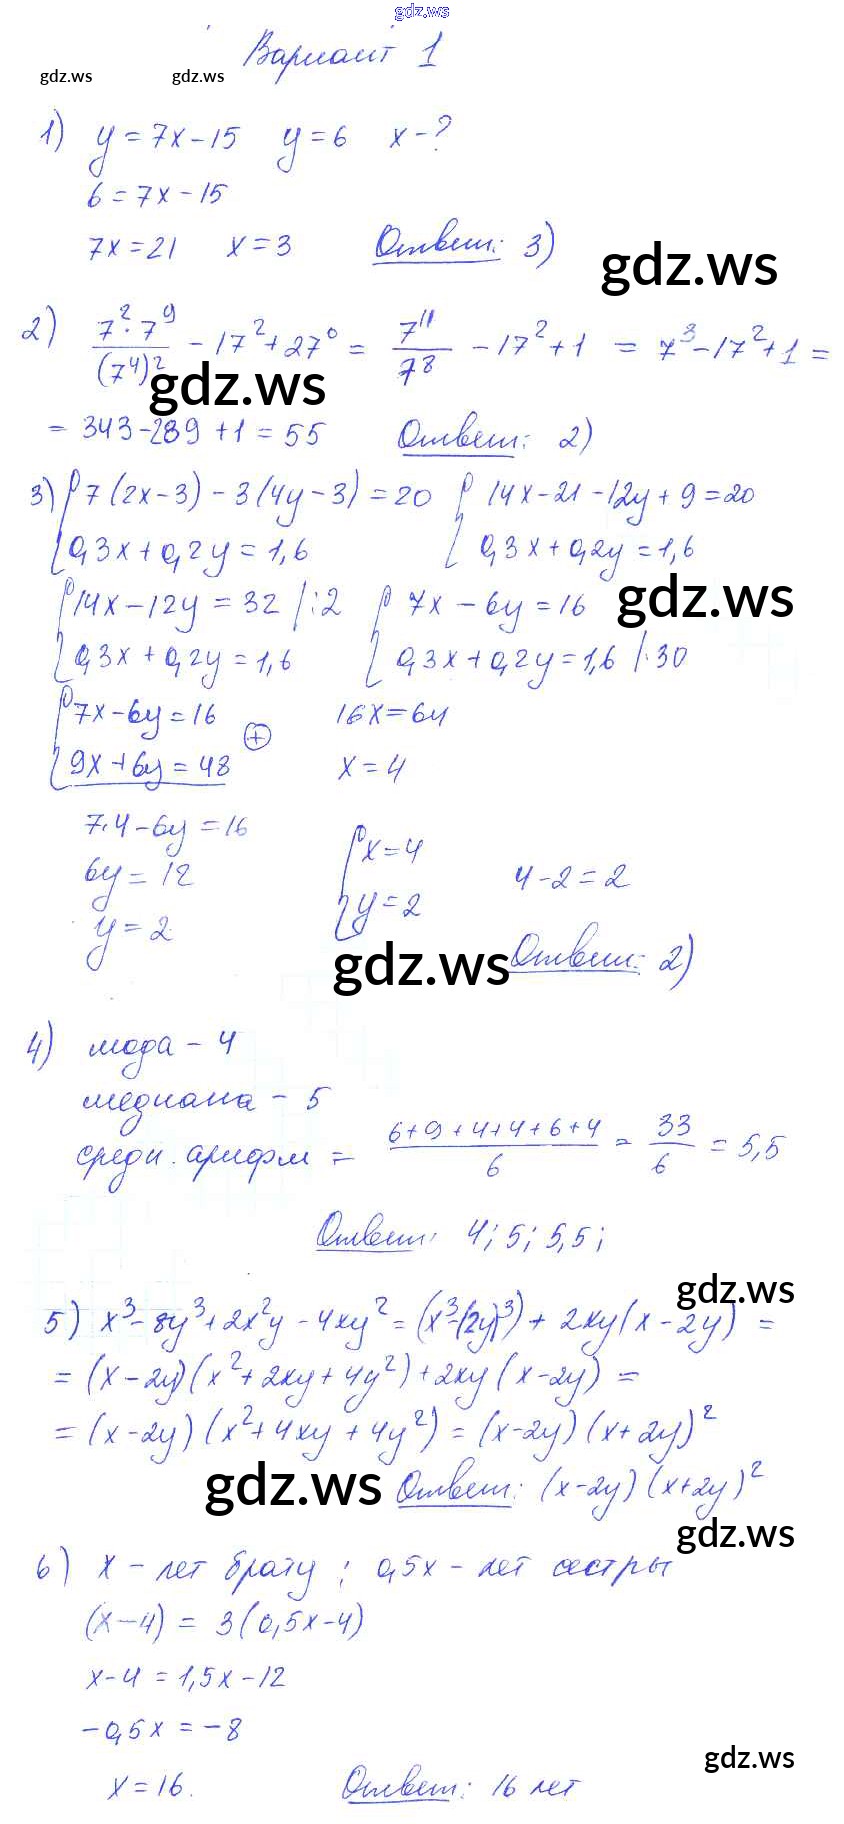 gdz.ws
Вариант 1
gdz.ws gdz.ws
1) y = 7x - 15 y = 6 x - ?
6 = 7x - 15
7x = 21 x = 3 Ответ: 3)
gdz.ws
2) 7² · 7⁹ / (7⁴)² - 17² + 27⁰ = 7¹¹ / 7⁸ - 17² + 1 = 7³ - 17² + 1 =
gdz.ws
= 343 - 289 + 1 = 55 Ответ: 2)
3) { 7(2x - 3) - 3(4y - 3) = 20 { 14x - 21 - 12y + 9 = 20
0,3x + 0,2y = 1,6 0,3x + 0,2y = 1,6
gdz.ws
{ 14x - 12y = 32 /:2 { 7x - 6y = 16
0,3x + 0,2y = 1,6 0,3x + 0,2y = 1,6 /·30
{ 7x - 6y = 16 (+) 16x = 64
9x + 6y = 48 x = 4
7·4 - 6y = 16 { x = 4
6y = 12 4 - 2 = 2
y = 2 y = 2
gdz.ws Ответ: 2)
4) мода - 4
медиана - 5
средн. арифм = 6+9+4+4+6+4 / 6 = 33 / 6 = 5,5
Ответ: 4; 5; 5,5;
gdz.ws
5) x³ - 8y³ + 2x²y - 4xy² = (x³ - (2y)³) + 2xy(x - 2y) =
= (x - 2y)(x² + 2xy + 4y²) + 2xy(x - 2y) =
= (x - 2y)(x² + 4xy + 4y²) = (x - 2y)(x + 2y)²
gdz.ws Ответ: (x - 2y)(x + 2y)²
gdz.ws
6) x - лет брату; 0,5x - лет сестры
(x - 4) = 3(0,5x - 4)
x - 4 = 1,5x - 12
-0,5x = -8
gdz.ws
x = 16. Ответ: 16 лет